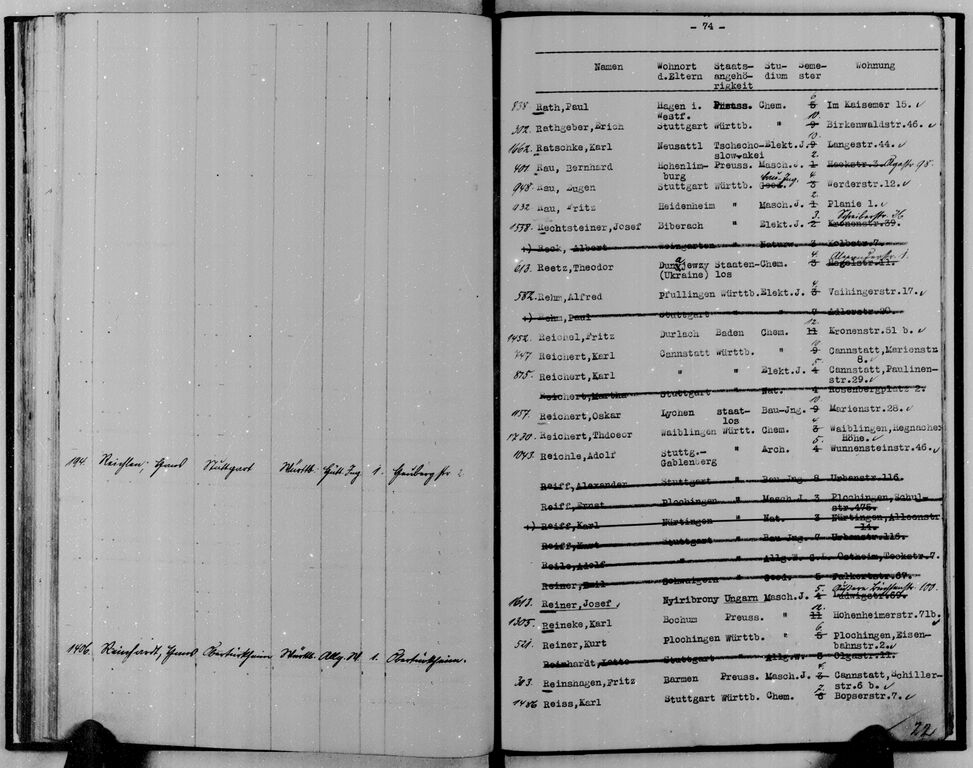 194. Stuttgart Württb. 1.
1496. Reinhardt, Hans Obertürkheim Württb. Allg. W 1. Obertürkheim.
- 74 -
Namen Wohnort Staats- Stu- Seme- Wohnung
d.Eltern angehö- dium ster
rigkeit
838. Rath,Paul Hagen i. Preuss. Chem. 5 6 Im Kaisemer 15.
Westf.
302. Rathgeber,Erich Stuttgart Württb. " 9 10. Birkenwaldstr.46.
1662. Ratschke,Karl Neusattl Tschecho- Elekt.J. 9 10. Langestr.44.
slowakei
401. Rau, Bernhard Hohenlim- Preuss. Masch.J. 1 2. Hackstr.3.
burg
948. Rau, Eugen Stuttgart Württb. Geod. Bau-Ing. 3 4. Werderstr.12.
932. Rau, Fritz Heidenheim " Masch.J. 1 2. Planie 1.
1538. Rechtsteiner,Josef Biberach Elekt.J. 2 3. Kronenstr.39. Schreiberstr. 36
+) Reck, Albert Weingarten " Naturw. 3 Kolbstr.7.
613. Reetz,Theodor Dunajewzy Staaten- Chem. 3 4. Hegelstr.11. Alexanderstr. 1.
(Ukraine) los
582. Rehm,Alfred Pfullingen Württb. Elekt.J. 3 4 Vaihingerstr.17.
+) Rehm,Paul Stuttgart " Adlerstr.30.
1452. Reichel,Fritz Durlach Baden Chem. 11 12. Kronenstr.51 b.
747. Reichert,Karl Cannstatt Württb. " 9 10 Cannstatt,Marienstr
8.
875. Reichert,Karl " " Elekt.J. 4 5. Cannstatt,Paulinen-
str.29.
Reichert,Martha Stuttgart " Nat. 4 Rosenbergplatz 2.
1157. Reichert,Oskar Lychen staat- Bau-Jng. 9 10 Marienstr.28.
los
1730. Reichert,Thdoeor Waiblingen Württ. Chem. 3 4 Waiblingen,Hegnacher
Höhe.
1043. Reichle,Adolf Stuttg.- " Arch. 4 5. Wunnensteinstr.46.
Gablenberg
Reiff,Alexander Stuttgart " Bau-Jng. 8 Urbanstr.116.
Reiff,Ernst Plochingen " Masch.J. 3 Plochingen,Schul-
str.475.
+) Reiff,Karl Nürtingen " Nat. 3 Nürtingen,Alleenstr
14.
Reiff,Kurt Stuttgart " Bau-Jng. 7 Urbanstr.116.
Reile,Adolf " Allg.W. Ostheim,Teckstr.7.
Reiner,Emil Schwaigern " Geod. 5 Falkertstr.67.
1613. Reiner,Josef Nyiribrony Ungarn Masch.J. 4 5. Ludwigstr.69. 100.
1305. Reineke,Karl Bochum Preuss. " 11 12. Hohenheimerstr.71b.
521. Reiner,Kurt Plochingen Württb. " 5 6. Plochingen,Eisen-
bahnstr.2.
Reinhardt,Lotte Stuttgart " Allg.W. 5 Olgastr.11.
303. Reinshagen,Fritz Barmen Preuss. Masch.J. 3 4. Cannstatt,Schiller-
str.6 b.
1486 Reiss,Karl Stuttgart Württb. Chem. 6 7. Bopserstr.7.
22